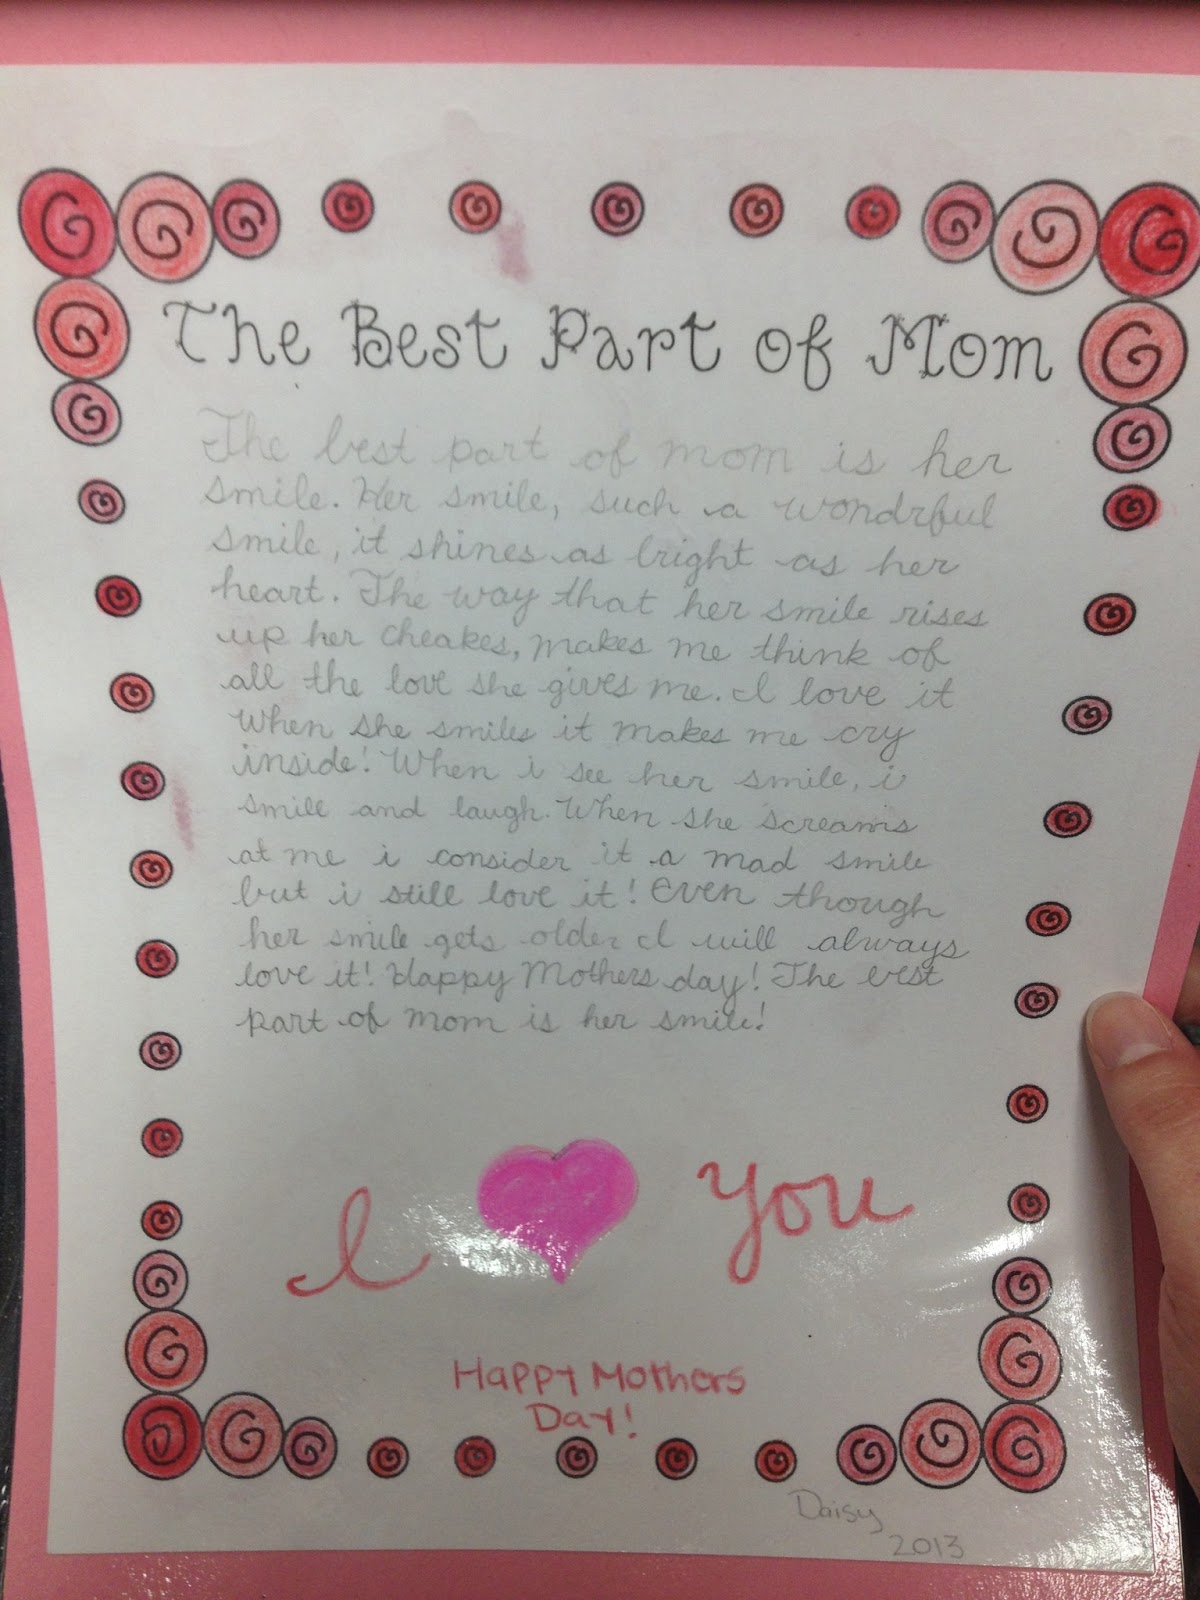 The Best Part of Mom
The best part of mom is her
smile. Her smile, such a wondrful
smile, it shines as bright as her
heart. The way that her smile rises
up her cheakes, makes me think of
all the love she gives me. I love it
When she smiles it makes me cry
inside! When i see her smile, i
smile and laugh. When she screams
at me i consider it a mad smile
but i still love it! Even though
her smile gets older I will always
love it! Happy Mothers day! The best
part of mom is her smile!
I you
Happy Mothers
Day!
Daisy
2013